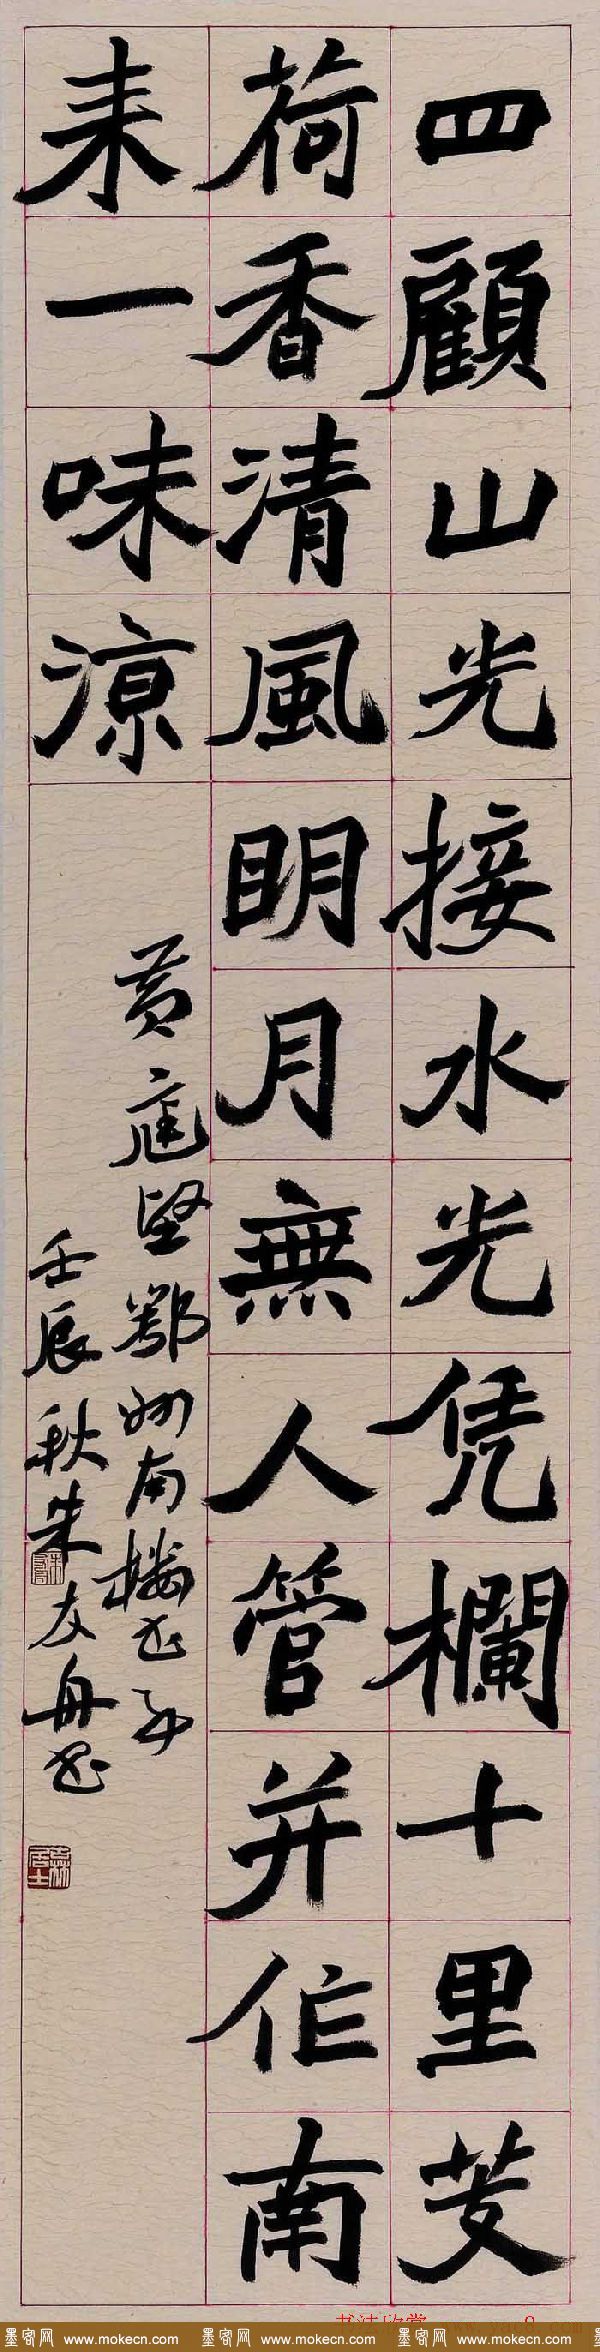 四顧山光接水光凭欄十里芰
荷香清風明月無人管并作南
来一味涼
黄庭堅鄂州南樓书事
壬辰秋朱友舟书
书法欣赏 www.yac8.com
墨客网 www.mokecn.com 墨客网 www.mokecn.com 墨客网 www.mokecn.com